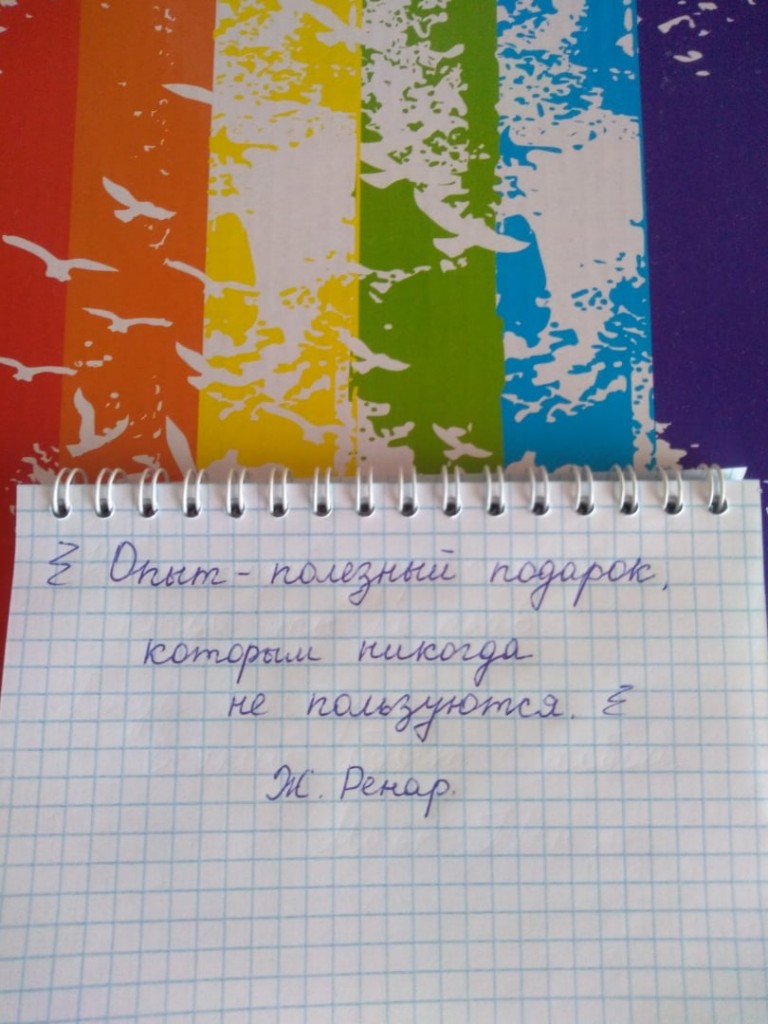 { Опыт - полезный подарок,
которым никогда
не пользуются. {
Ж. Ренар.